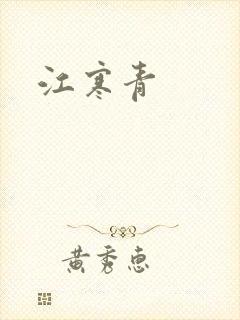 江寒青
黄秀惠